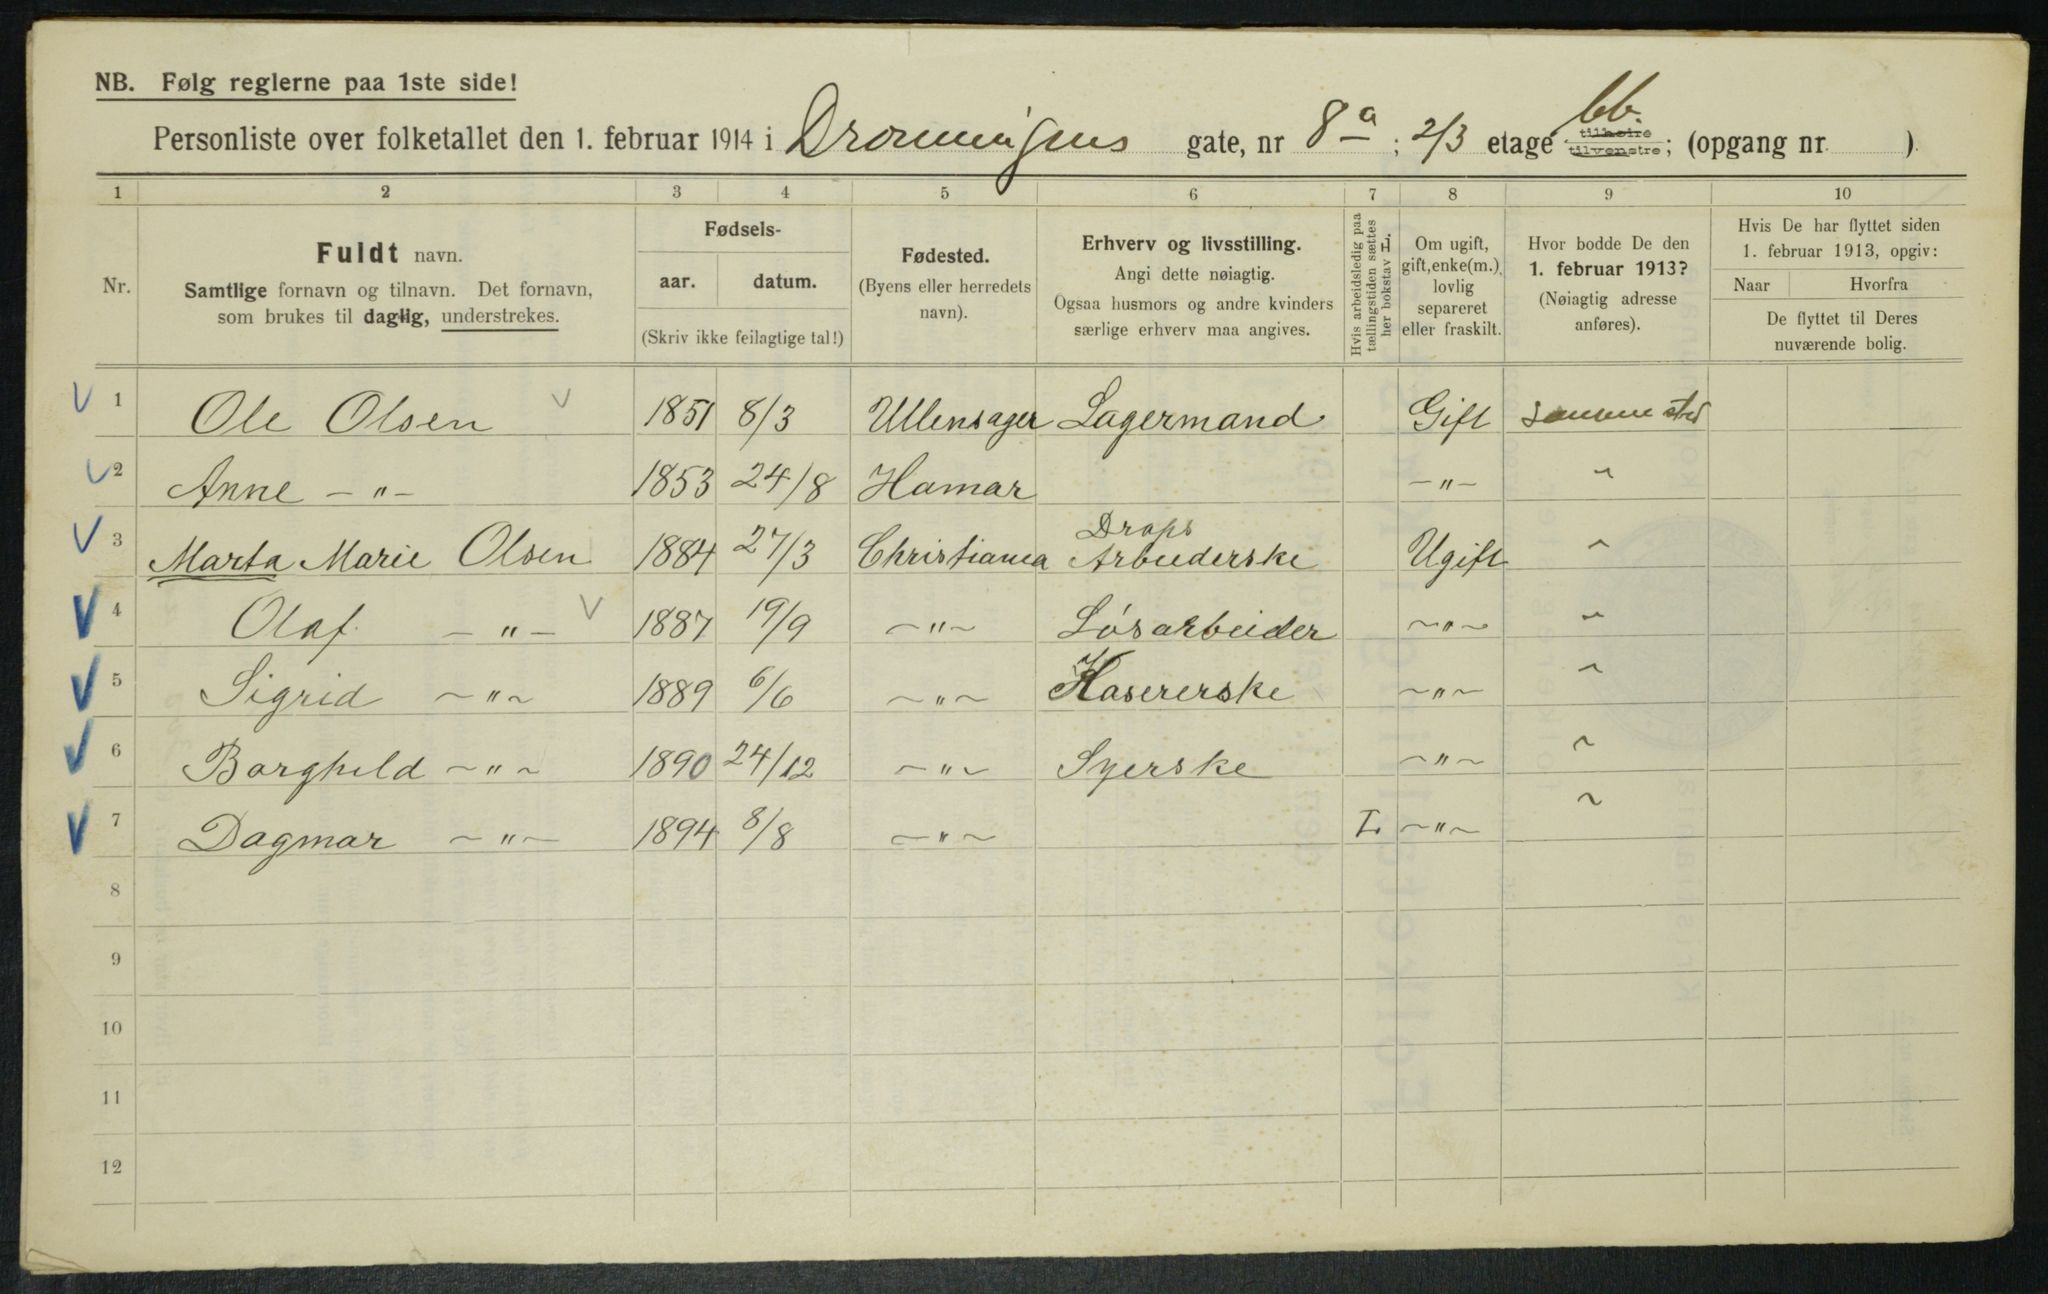 NB. Følg reglerne paa 1ste side!
Personliste over folketallet den 1. februar 1914 i Dronningens gate, nr 8a; 2/3 etage tilhøire tilvenstre bb.; (opgang nr. )
1 2 3 4 5 6 7 8 9 10
Nr.
Fuldt navn.
Samtlige fornavn og tilnavn. Det fornavn,
som brukes til daglig, understrekes.
Fødsels-
aar. datum.
(Skriv ikke feilagtige tal!)
Fødested.
(Byens eller herredets
navn).
Erhverv og livsstilling.
Angi dette nøiagtig.
Ogsaa husmors og andre kvinders
særlige erhverv maa angives.
Hvis arbeidsledig paa
tællingstiden sættes
her bokstav L.
Om ugift,
gift, enke(m.),
lovlig
separeret
eller fraskilt.
Hvor bodde De den
1. februar 1913?
(Nøiagtig adresse
anføres).
Hvis De har flyttet siden
1. februar 1913, opgiv:
Naar Hvorfra
De flyttet til Deres
nuværende bolig.
1 Ole Olsen 1851 8/3 Ullensager Lagermand Gift samme sted
2 Anne – " – 1853 24/8 Hamar – " – "
3 Marta Marie Olsen 1884 27/3 Christiania Drops Arbeiderske Ugift "
4 Olaf – " – 1887 19/9 – " – Løsarbeider – " – "
5 Sigrid – " – 1889 6/6 – " – Kasererske – " – "
6 Borghild – " – 1890 24/12 – " – Syerske – " – "
7 Dagmar – " – 1894 8/8 – " – L. – " – "
8
9
10
11
12